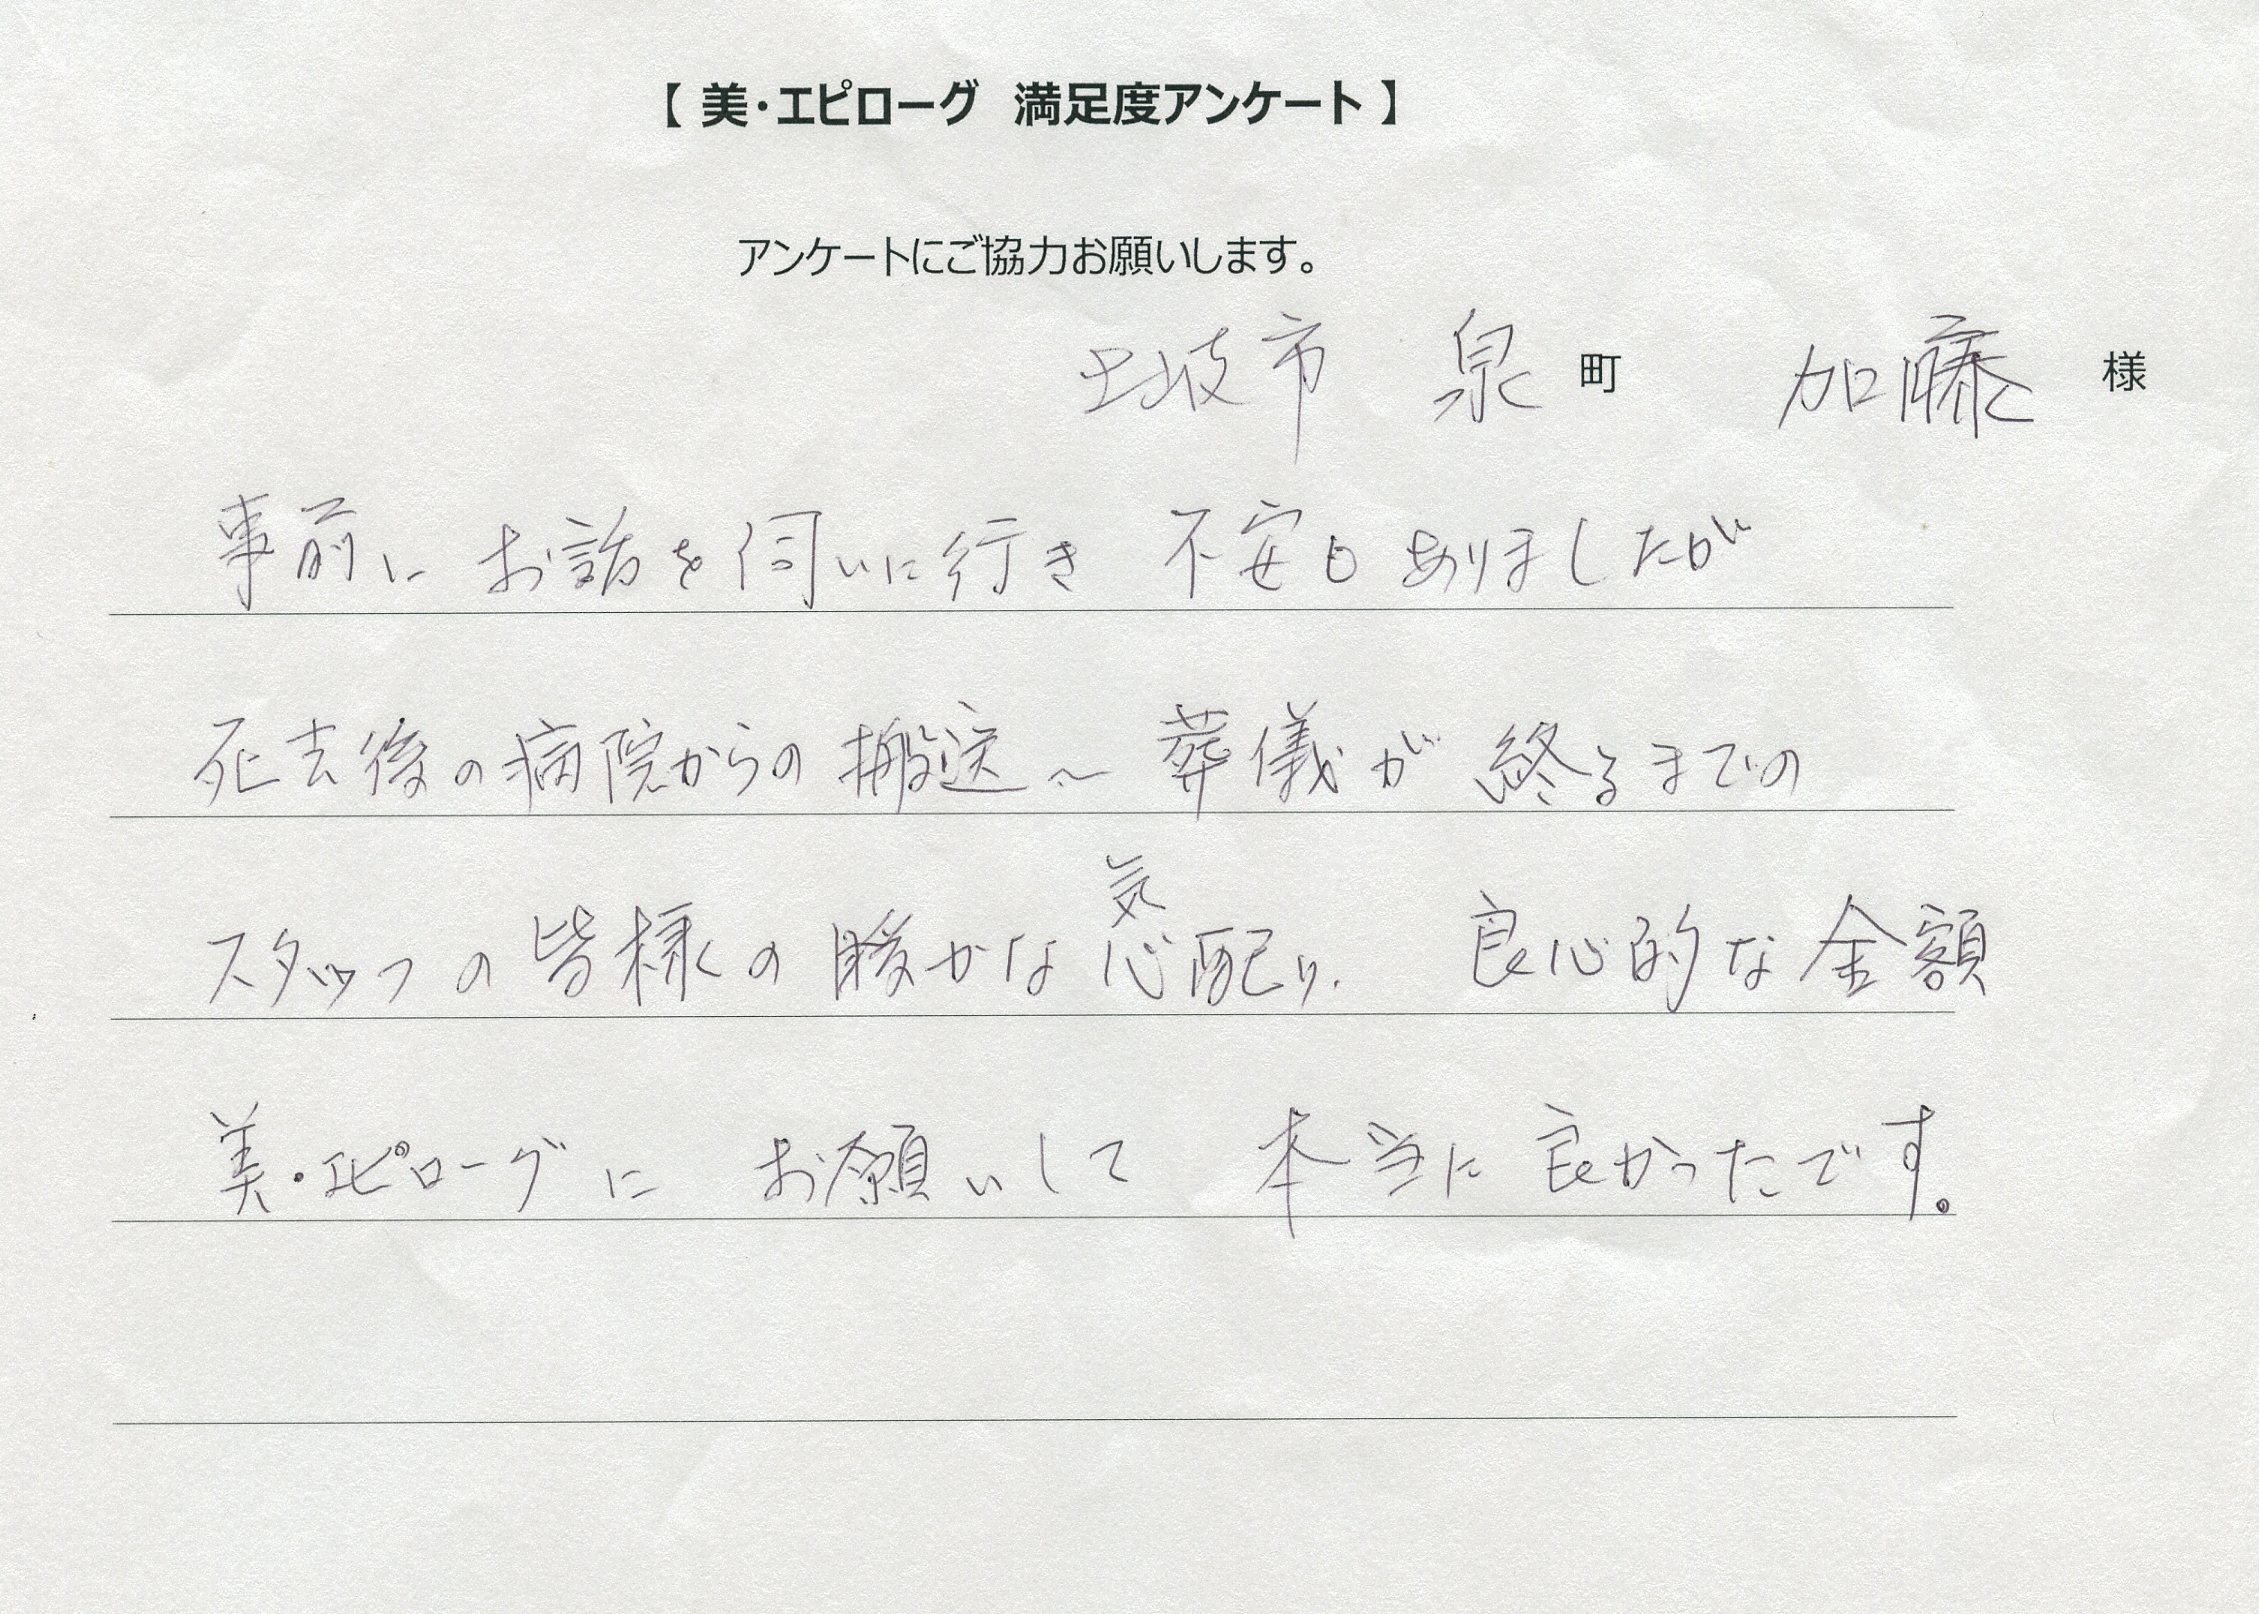 【 美・エピローグ 満足度アンケート 】
アンケートにご協力お願いします。
土岐市 泉 町 加藤 様
事前に お話を伺いに行き 不安も ありましたが
死去後の病院からの搬送〜葬儀が 終るまでの
気
スタッフの皆様の暖かな心配り、 良心的な金額
美・エピローグに お願いして 本当に良かったです。